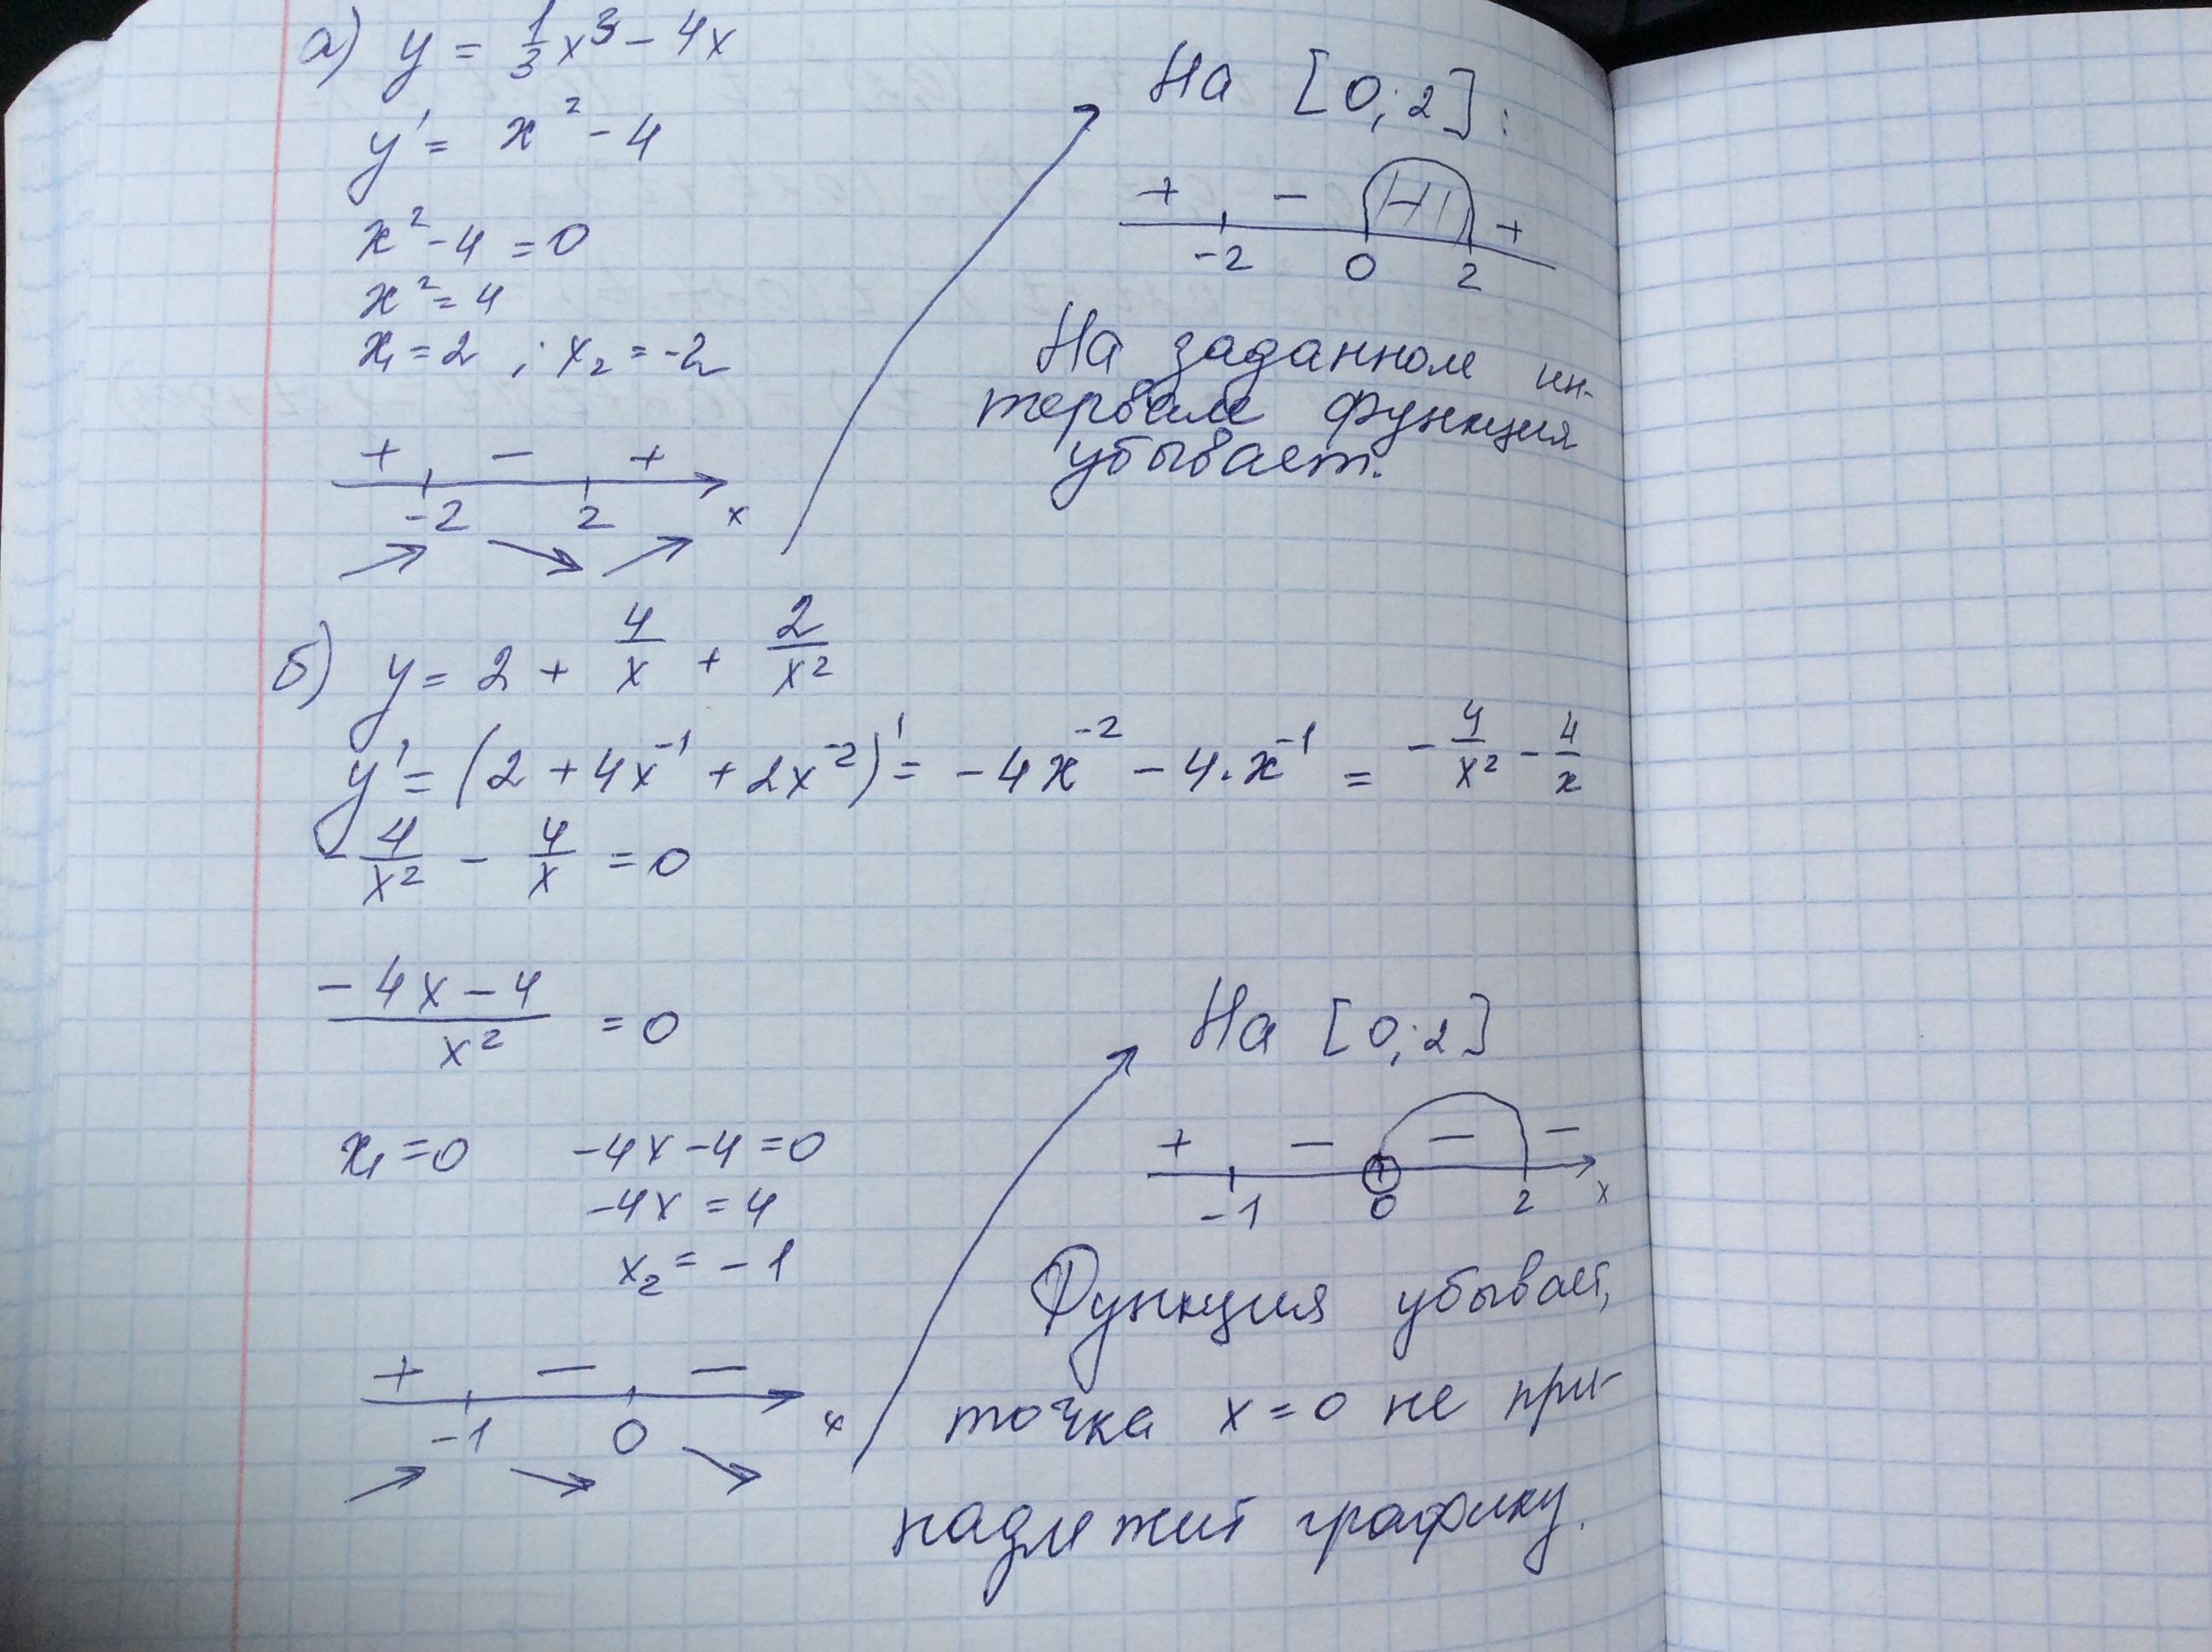 а) y = 1/3 x³ - 4x
y' = x² - 4
x² - 4 = 0
x² = 4
x₁ = 2 ; x₂ = -2
+ - +
-2 2 x
На [0; 2]:
+ - +
-2 0 2
На заданном ин-
тервале функция
убывает.
б) y = 2 + 4/x + 2/x²
y' = (2 + 4x⁻¹ + 2x⁻²)' = -4x⁻² - 4·x⁻¹ = -4/x² - 4/x
-4/x² - 4/x = 0
(-4x - 4)/x² = 0
x₁ = 0 -4x - 4 = 0
-4x = 4
x₂ = -1
+ - -
-1 0 x
На [0; 2]
+ - - -
-1 0 2 x
Функция убывает,
точка x = 0 не при-
надлежит графику.